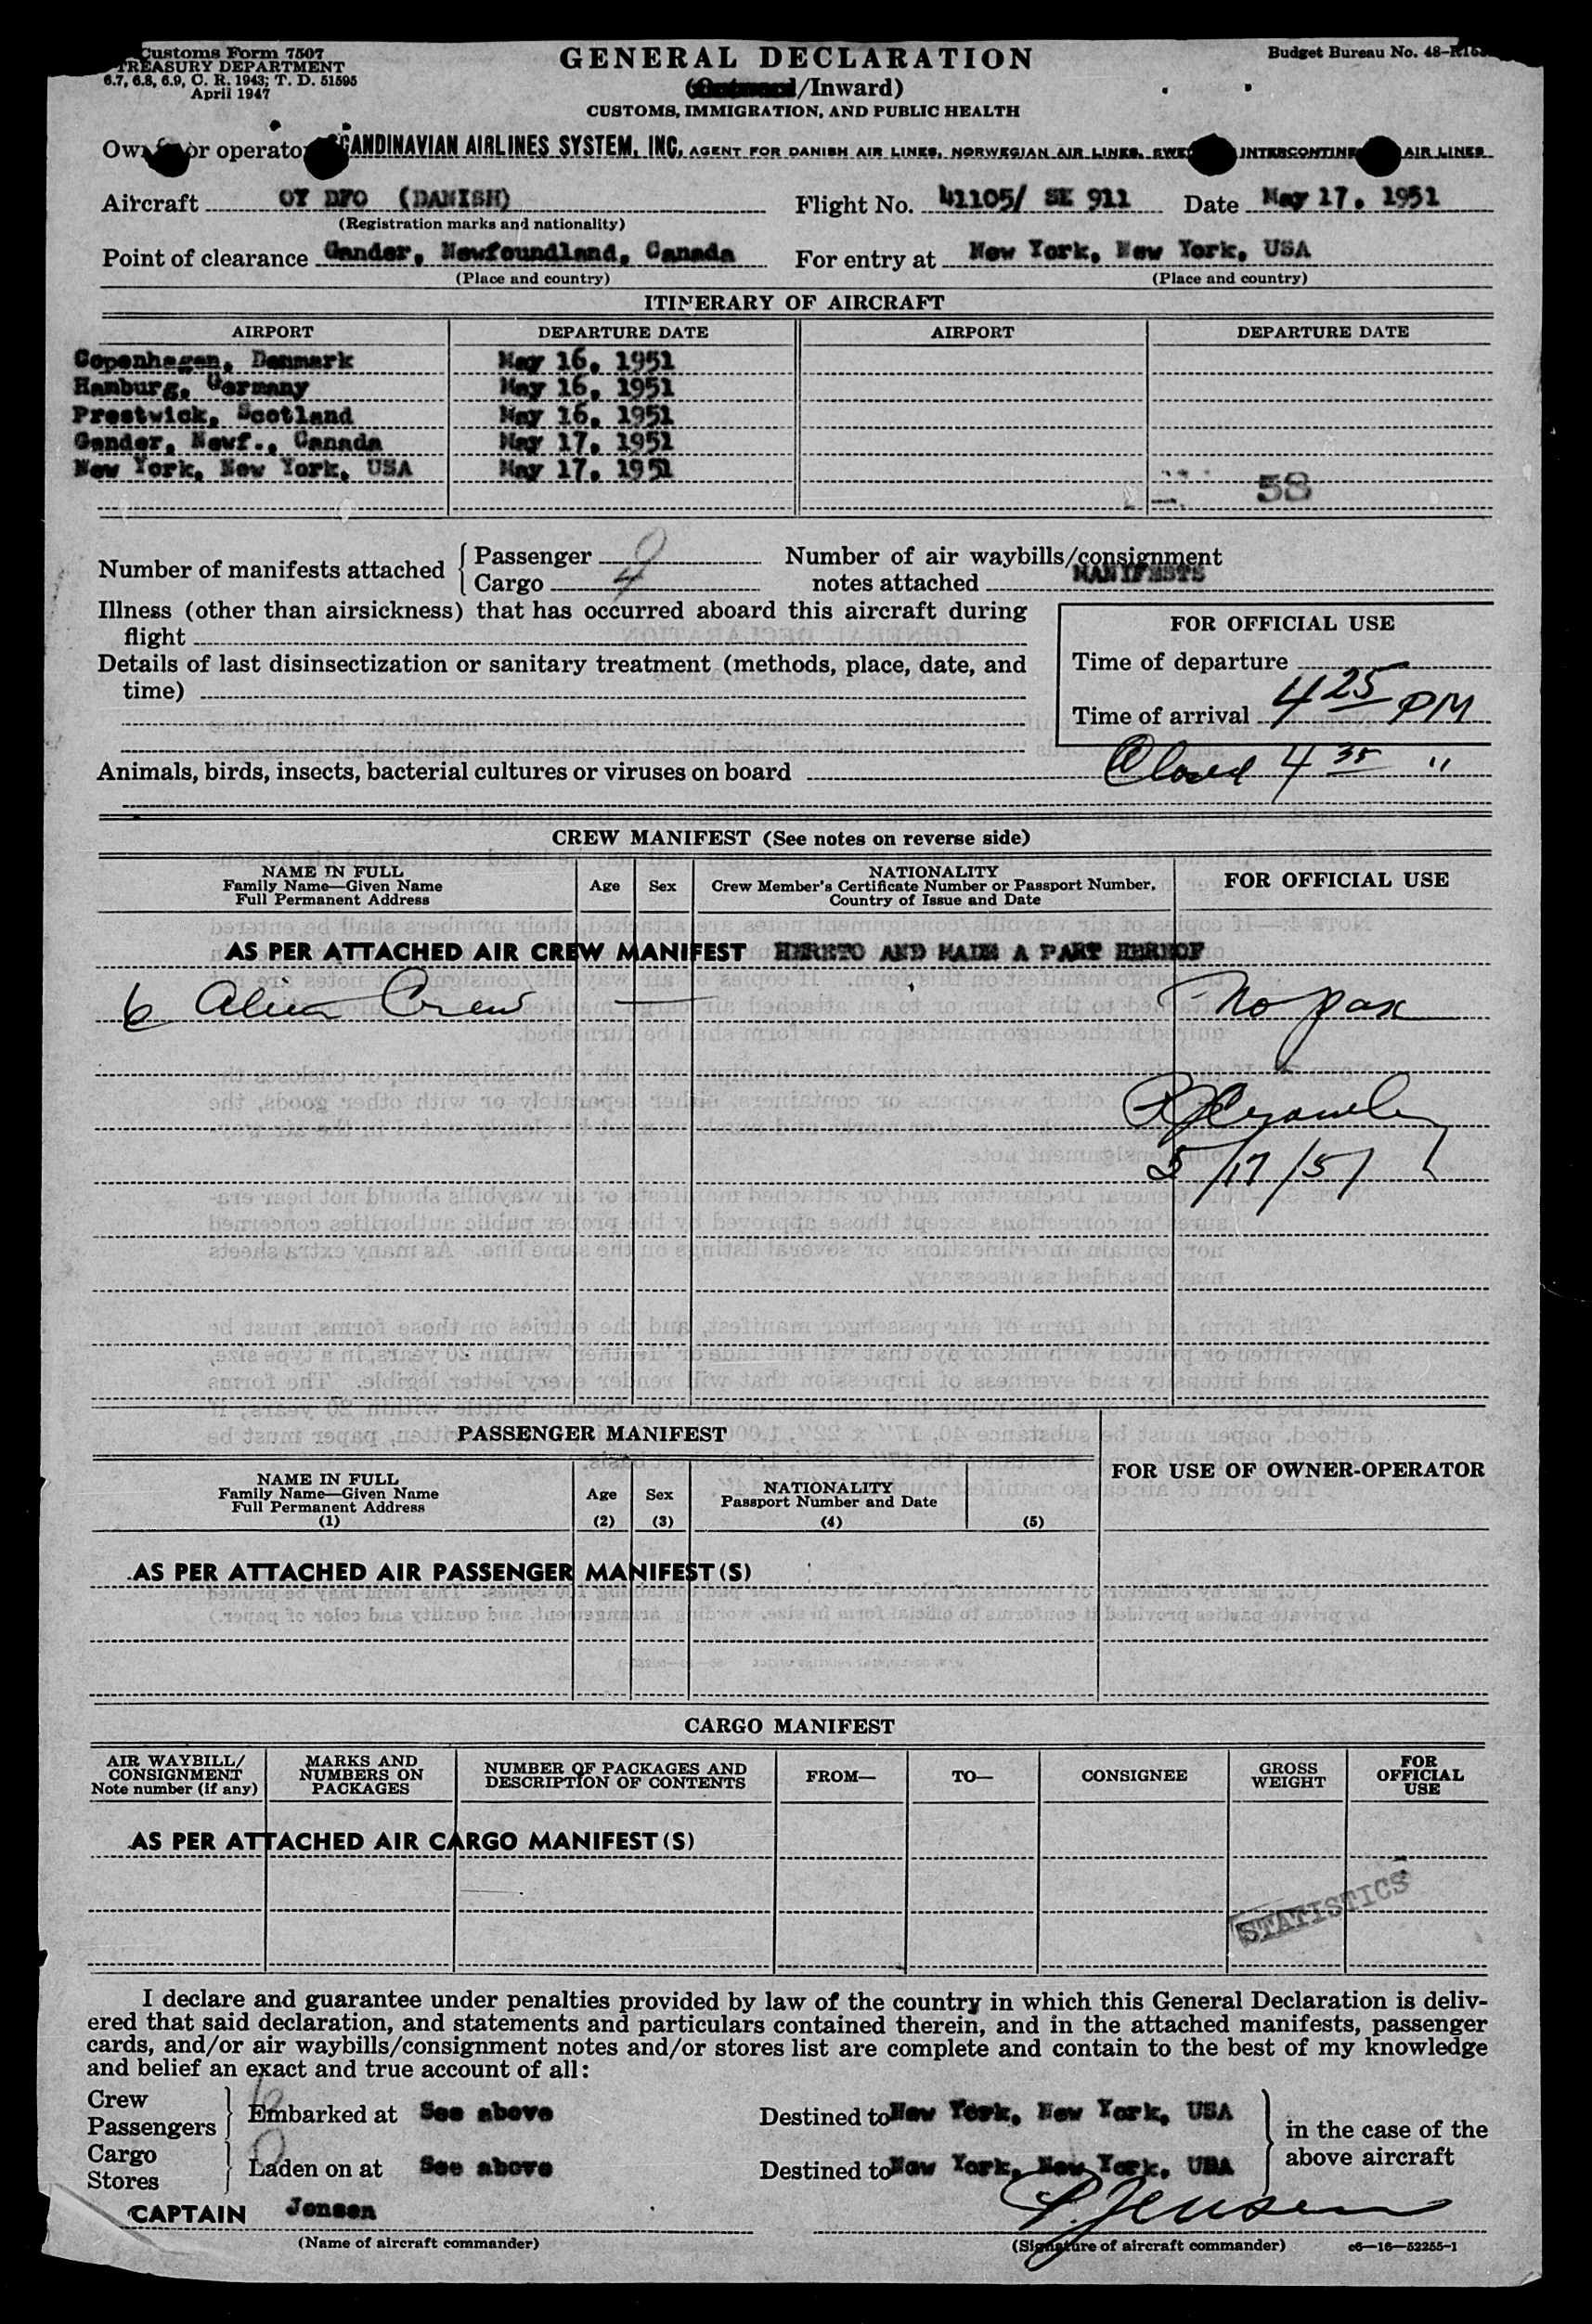 Customs Form 7507
TREASURY DEPARTMENT
6.7, 6.8, 6.9, C. R. 1943; T. D. 51595
April 1947
GENERAL DECLARATION
/Inward)
CUSTOMS, IMMIGRATION, AND PUBLIC HEALTH
Budget Bureau No.
or operator SCANDINAVIAN AIRLINES SYSTEM, INC. AGENT FOR DANISH AIR LINES, NORWEGIAN AIR LINES, AIR LINES
Aircraft OY DFO (DANISH) Flight No. 41105/ SK 911 Date May 17. 1951
(Registration marks and nationality)
Point of clearance Gander, Newfoundland, Canada For entry at New York, New York, USA
(Place and country) (Place and country)
ITINERARY OF AIRCRAFT
AIRPORT DEPARTURE DATE AIRPORT DEPARTURE DATE
Copenhagen, Denmark May 16, 1951
Hamburg, Germany May 16, 1951
Prestwick, Scotland May 16, 1951
Gander, Newf., Canada May 17, 1951
New York, New York, USA May 17, 1951
58
Number of manifests attached { Passenger 0
Cargo 4
Number of air waybills/consignment
notes attached MANIFESTS
Illness (other than airsickness) that has occurred aboard this aircraft during
flight
Details of last disinsectization or sanitary treatment (methods, place, date, and
time)
FOR OFFICIAL USE
Time of departure
Time of arrival 4 25 PM
Animals, birds, insects, bacterial cultures or viruses on board Closed 4 35 "
CREW MANIFEST (See notes on reverse side)
NAME IN FULL
Family Name—Given Name
Full Permanent Address
Age Sex
NATIONALITY
Crew Member's Certificate Number or Passport Number,
Country of Issue and Date
FOR OFFICIAL USE
AS PER ATTACHED AIR CREW MANIFEST HERETO AND MADE A PART HEREOF
6 Alien Crew — No pax
5/17/51
PASSENGER MANIFEST
NAME IN FULL
Family Name—Given Name
Full Permanent Address
(1)
Age
(2)
Sex
(3)
NATIONALITY
Passport Number and Date
(4) (5)
FOR USE OF OWNER-OPERATOR
AS PER ATTACHED AIR PASSENGER MANIFEST(S)
CARGO MANIFEST
AIR WAYBILL/
CONSIGNMENT
Note number (if any)
MARKS AND
NUMBERS ON
PACKAGES
NUMBER OF PACKAGES AND
DESCRIPTION OF CONTENTS
FROM— TO— CONSIGNEE
GROSS
WEIGHT
FOR
OFFICIAL
USE
AS PER ATTACHED AIR CARGO MANIFEST(S)
STATISTICS
I declare and guarantee under penalties provided by law of the country in which this General Declaration is deliv-
ered that said declaration, and statements and particulars contained therein, and in the attached manifests, passenger
cards, and/or air waybills/consignment notes and/or stores list are complete and contain to the best of my knowledge
and belief an exact and true account of all:
Crew
Passengers } 6 Embarked at See above Destined to New York, New York, USA
Cargo
Stores } 0 Laden on at See above Destined to New York, New York, USA
in the case of the
above aircraft
CAPTAIN Jensen P. Jensen
(Name of aircraft commander) (Signature of aircraft commander) c6—16—52255-1